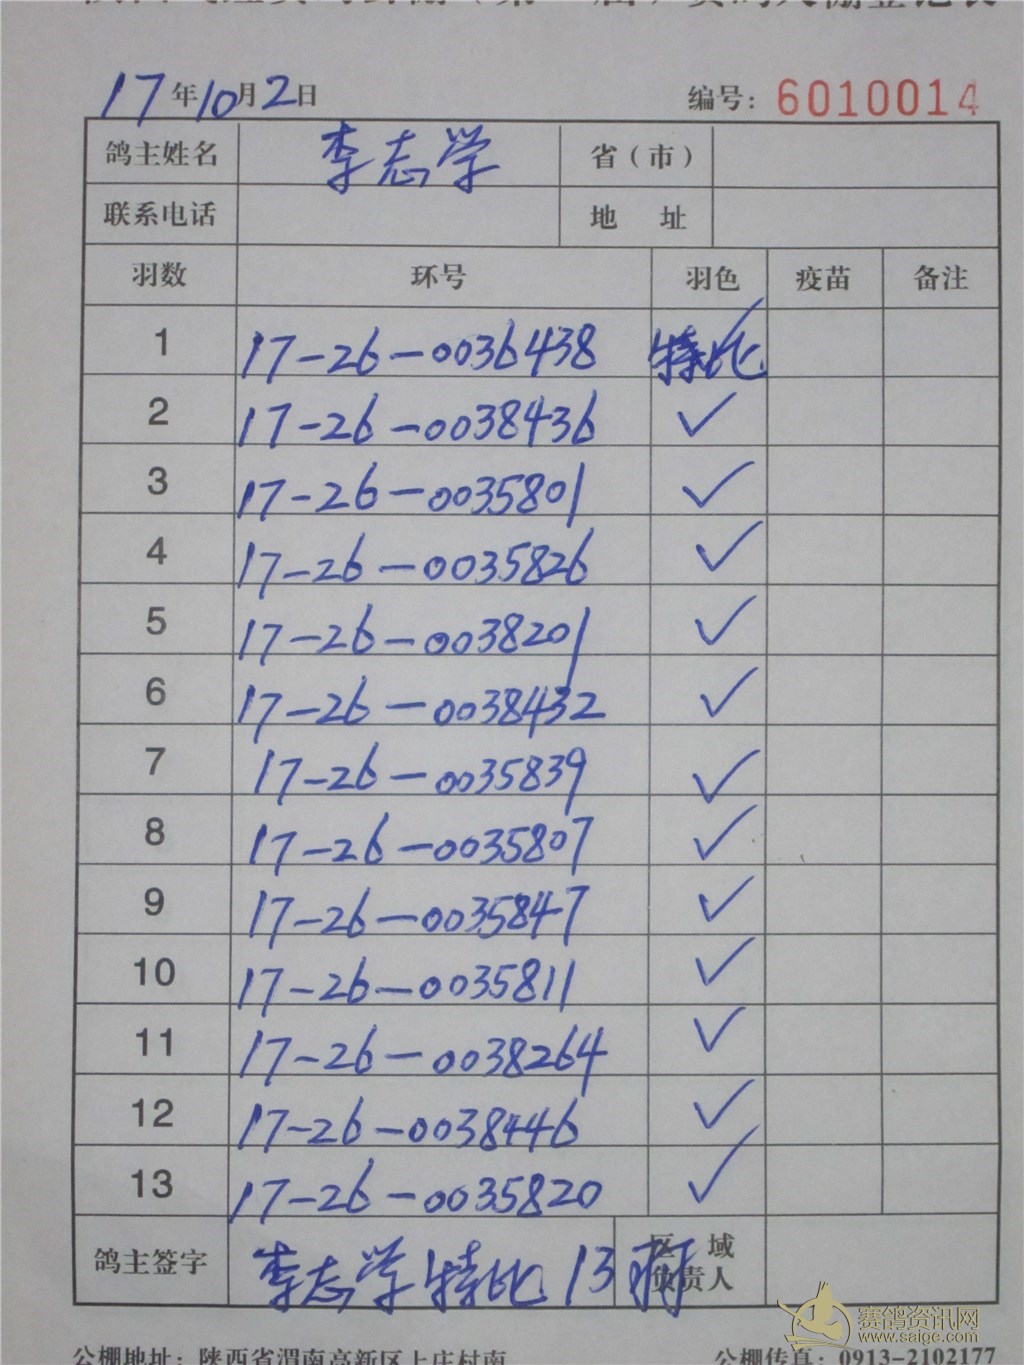 17年10月2日 编号：6010014
鸽主姓名 李志学 省（市）
联系电话 地 址
羽数 环号 羽色 疫苗 备注
1 17-26-0036438 特比 ✓
2 17-26-0038436 ✓
3 17-26-0035801 ✓
4 17-26-0035826 ✓
5 17-26-0038201 ✓
6 17-26-0038432 ✓
7 17-26-0035839 ✓
8 17-26-0035807 ✓
9 17-26-0035847 ✓
10 17-26-0035811 ✓
11 17-26-0038264 ✓
12 17-26-0038446 ✓
13 17-26-0035820 ✓
鸽主签字 李志学特比13羽 区域负责人
赛鸽资讯网
www.saige.com
公棚地址：陕西省渭南高新区上庄村南 公棚传真：0913-2102177